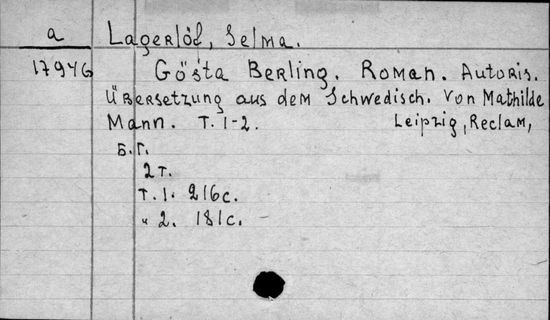 a
17946
Lagerlöf, Selma.
Gösta Berling. Roman. Autoris.
Übersetzung aus dem Schwedisch. Von Mathilde
Mann. T. 1-2. Leipzig, Reclam,
б.г.
2 т.
Т. 1. 216 с.
" 2. 181 с.